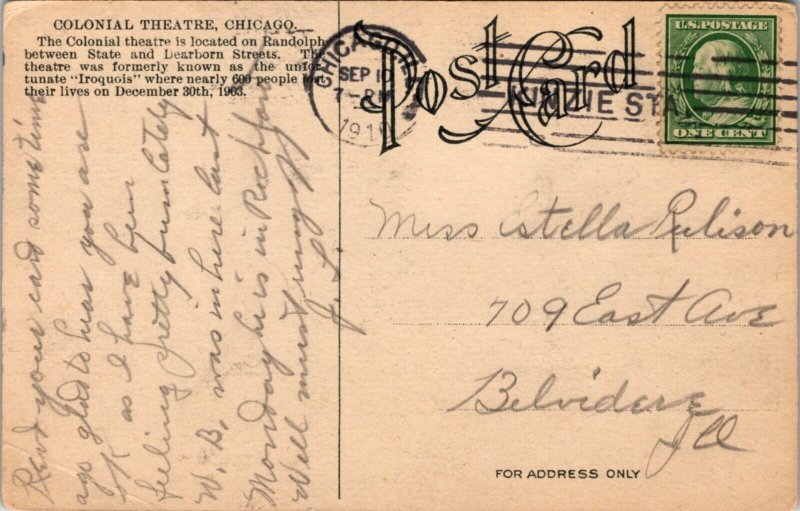 COLONIAL THEATRE, CHICAGO.
The Colonial theatre is located on Randolph
between State and Dearborn Streets. The
theatre was formerly known as the unfor-
tunate "Iroquois" where nearly 600 people lost
their lives on December 30th, 1903.
Post Card
CHICAGO, ILL.
SEP 10
7- PM
1910
U.S. POSTAGE
ONE CENT
Recd your card some time
ago glad to hear you are
OK as I have been
feeling pretty bum lately
W. B. was in here last
Monday he is in Rockford
Will must ring off
J. L.
Miss Estella Pulison
709 East Ave
Belvidere
Ill
FOR ADDRESS ONLY